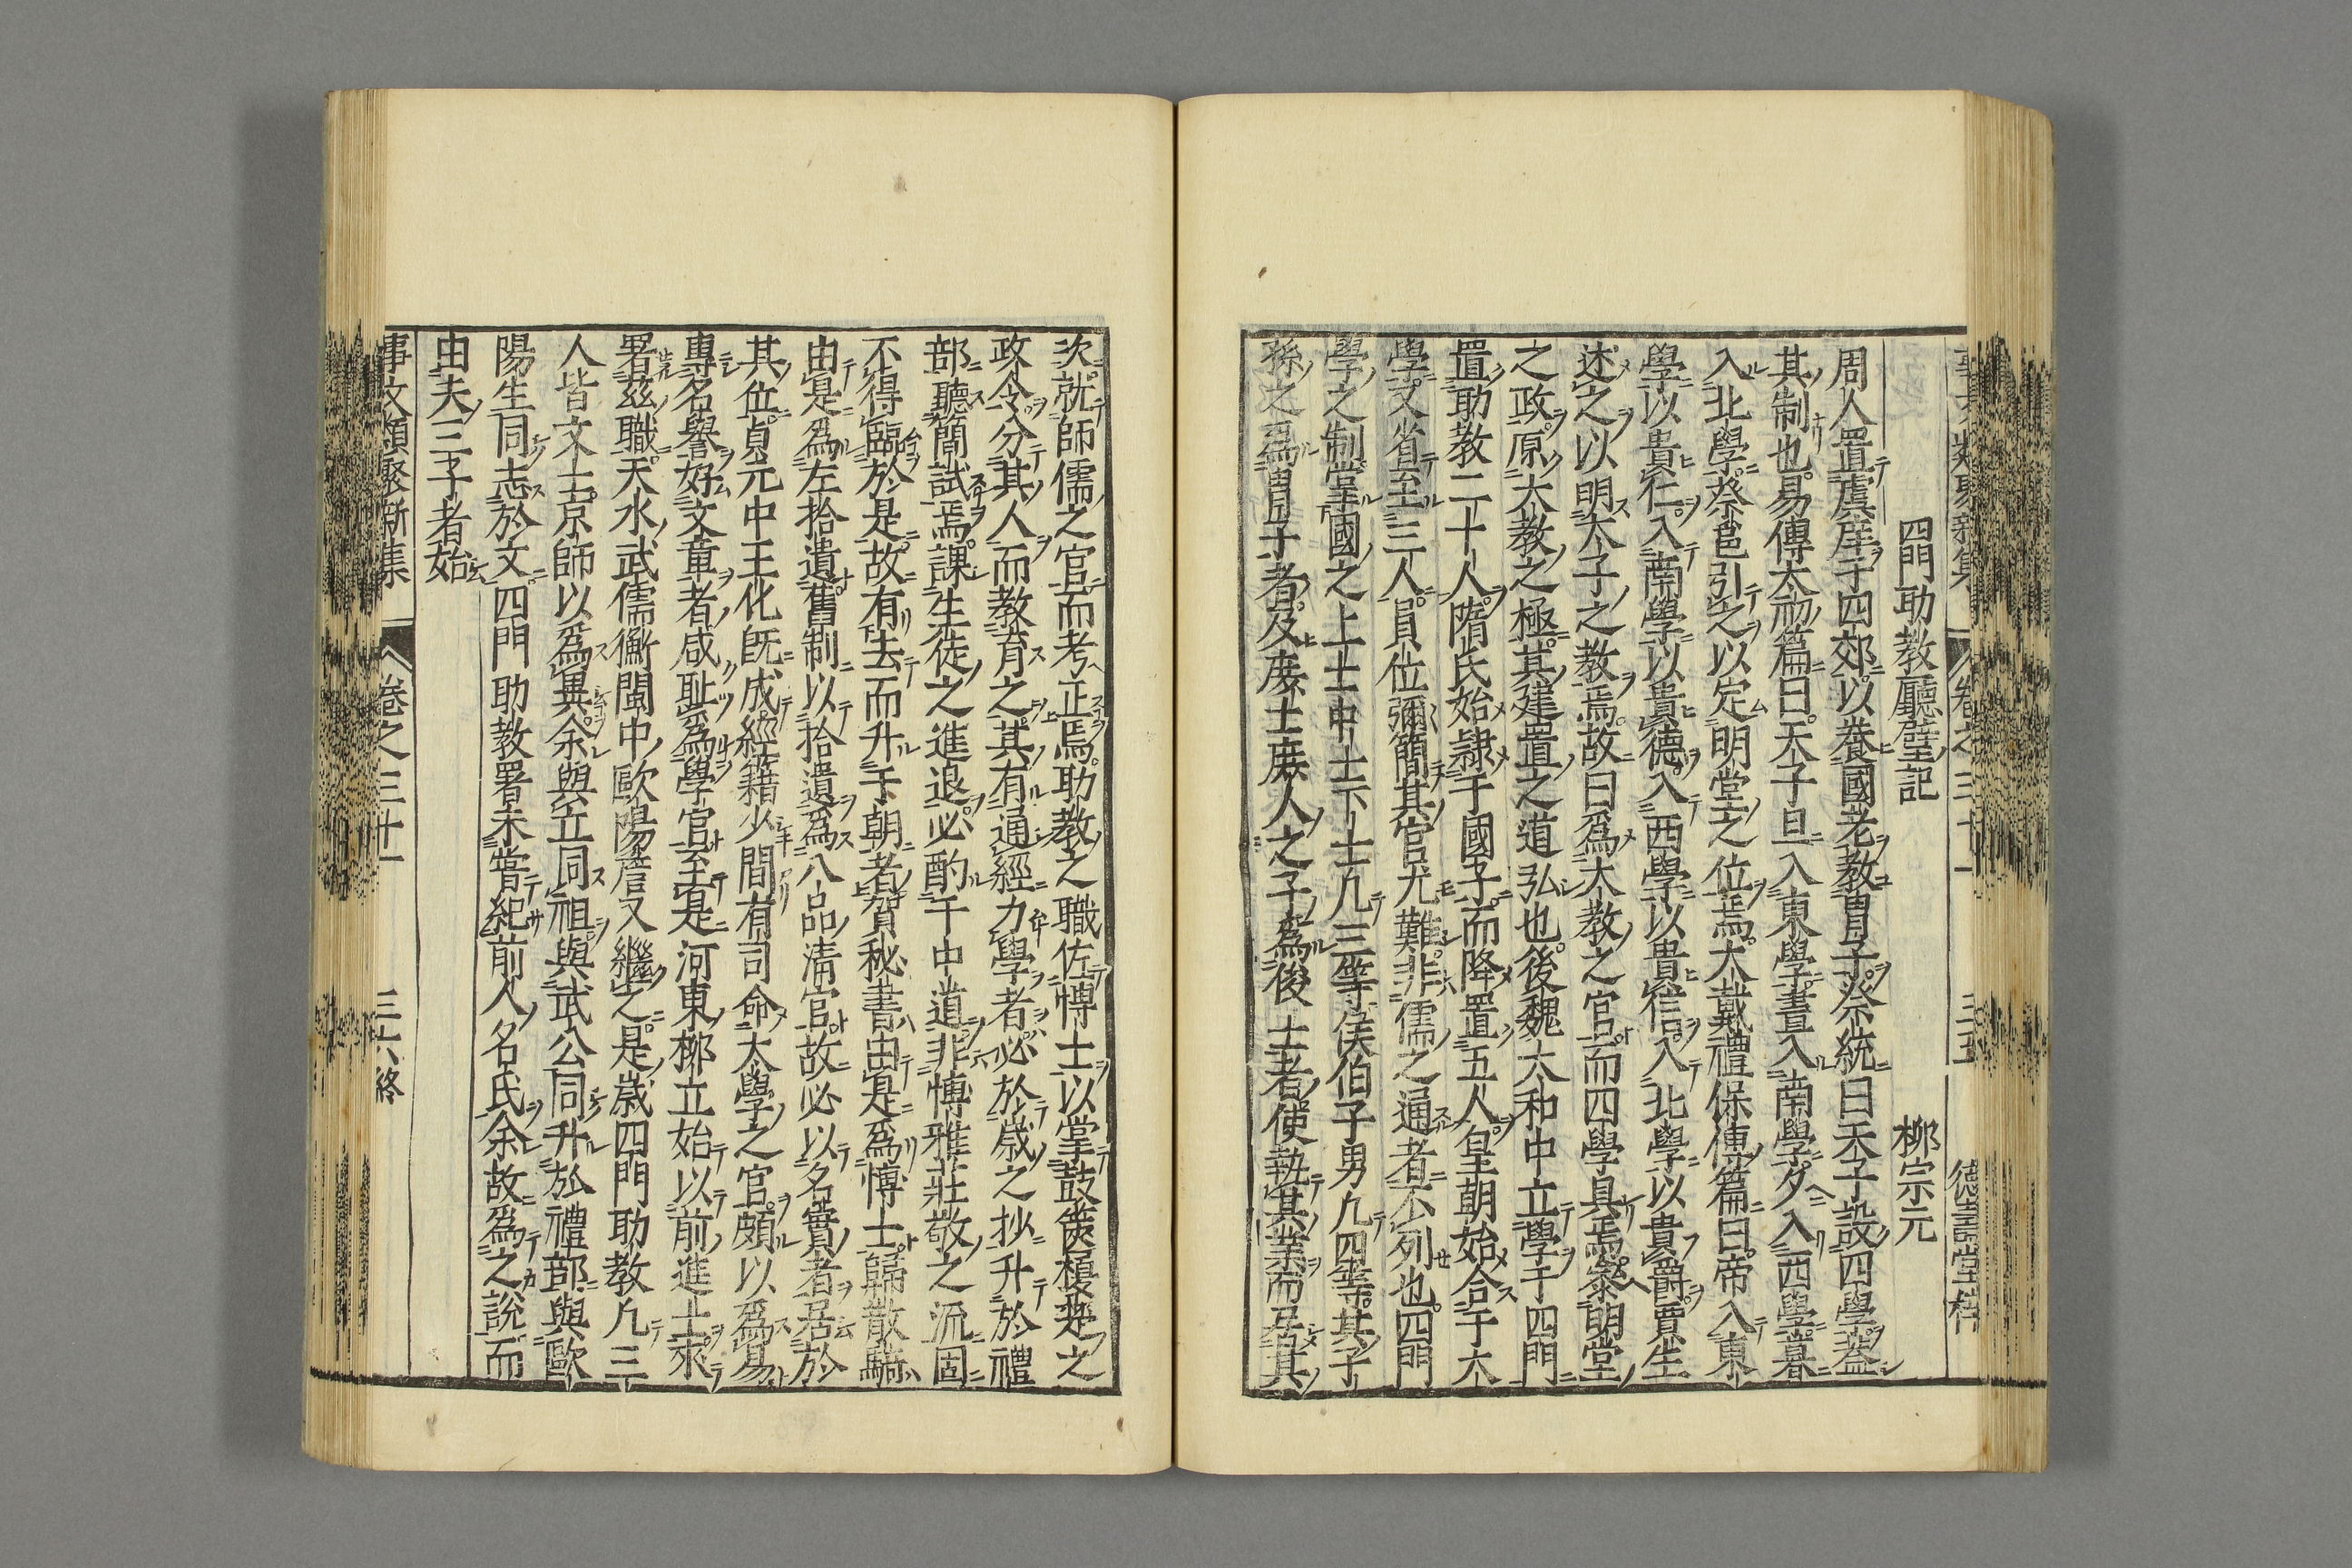 四門助教廳壁記 柳宗元
周人置虞庠于四郊以養國老教冑子祭統曰天子設四學蓋
其制也易傳太初篇曰天子旦入東學晝入南學夕入西學暮
入北學蔡邕引之以定明堂之位焉大戴禮保傅篇曰帝入東
學以貴仁入南學以貴德入西學以貴信入北學以貴爵賈生
述之以明太子之教焉故曰爲大教之官而四學具焉參明堂
之政原大教之極其建置之道弘也後魏太和中立學于四門
置助教二十人隋氏始隷于國子而降置五人皇朝始合于太
學又省至三人員位彌簡其官尤難非儒之通者不列也四門
學之制掌國之上士中士下士凡三等侯伯子男凡四等其子
孫之爲冑子者及庻士庻人之子爲俊士者使執其業而居其
次就師儒之官而考正焉助教之職佐博士以掌鼓篋榎楚之
政令分其人而教育之其有通經力學者必於歲之抄升於禮
部聽簡試焉課生徒之進退必酌于中道非博雅莊敬之流固
不得臨於是故有去而升于朝者賀秘書由是爲博士歸散騎
由是爲左拾遺舊制以拾遺爲八品清官故必以名實者居於
其位貞元中王化旣成經籍少間有司命太學之官頗以爲易
專名譽好文章者咸耻爲學官至是河東柳立始以前進士求
署兹職天水武儒衡閩中歐陽詹又繼之是歲四門助教凡三
人皆文士京師以爲異余與立同祖與武公同升於禮部與歐
陽生同志於文四門助教署未嘗紀前人名氏余故爲之說而
由夫三子者始
事文類聚新集 卷之三十一 三六終